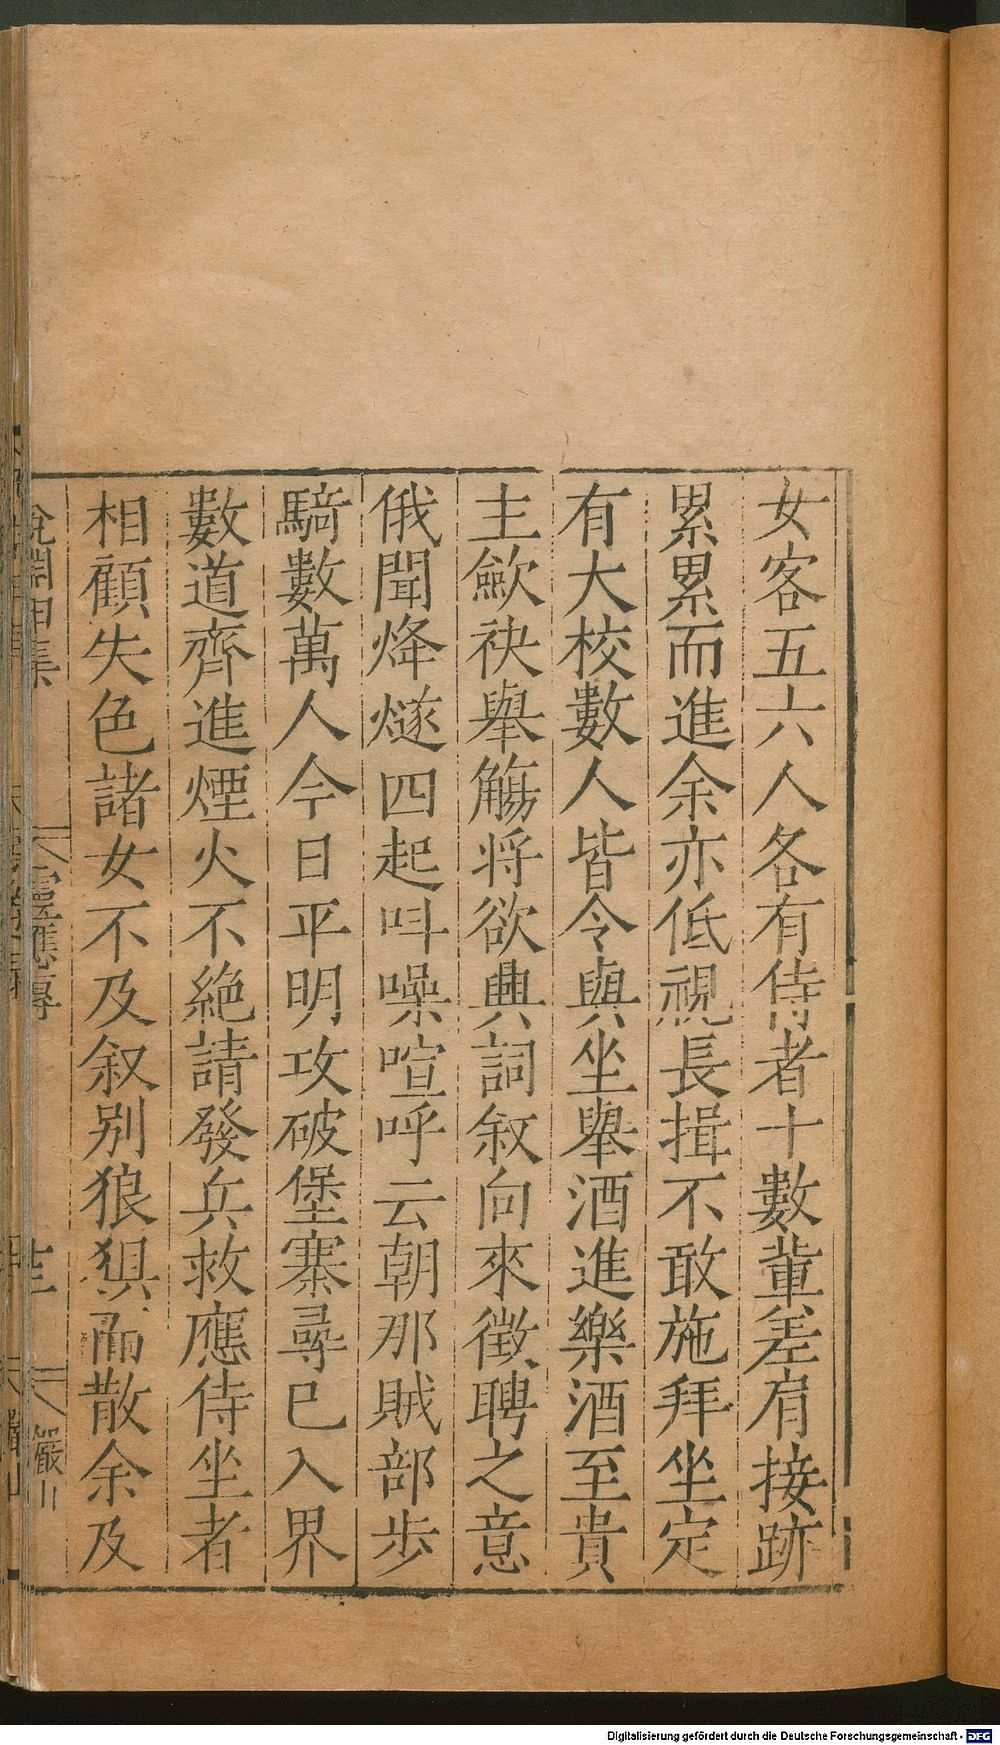 女客五六人各有侍者十數軰差肩接跡
累累而進余亦低視長揖不敢施拜坐定
有大校數人皆令與坐舉酒進樂酒至貴
主歛袂舉觴将欲興詞叙向來徵聘之意
俄聞烽燧四起呌噪喧呼云朝那賊部步
騎數萬人今日平明攻破堡寨尋已入界
數道齊進煙火不絶請發兵救應侍坐者
相顧失色諸女不及叙别狼狽而散余及
靈應傳
嚴山
Digitalisierung gefördert durch die Deutsche Forschungsgemeinschaft - DFG